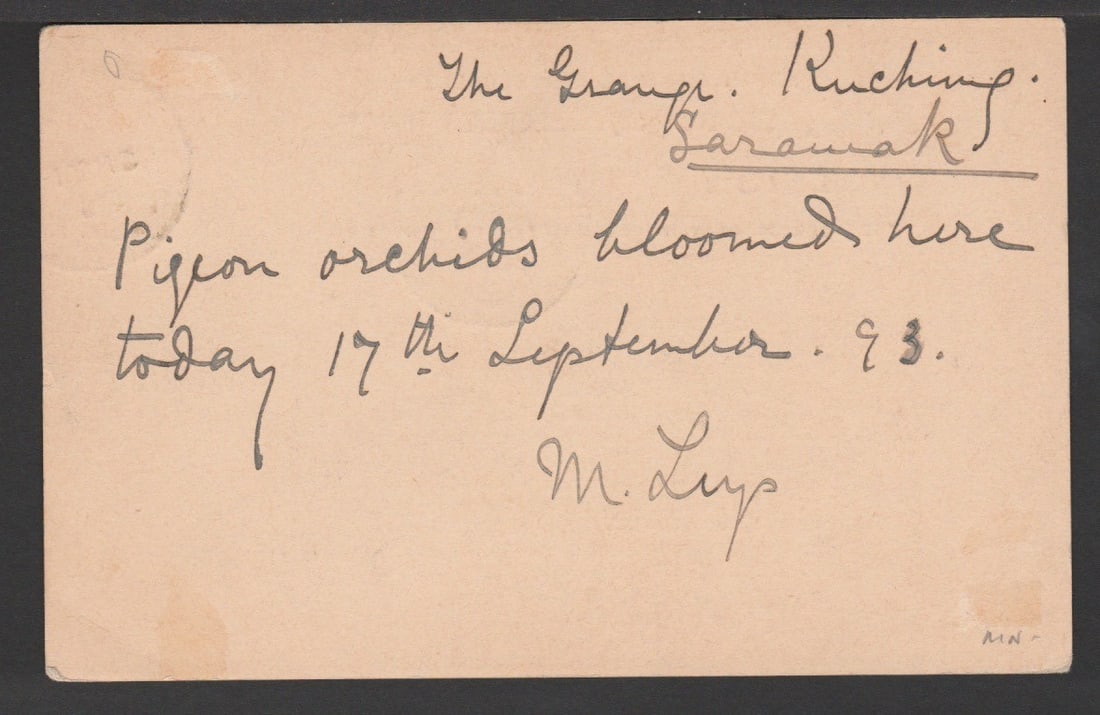 The Grange. Kuching.
Sarawak
Pigeon orchids bloomed here
today 17th September. 93.
M.